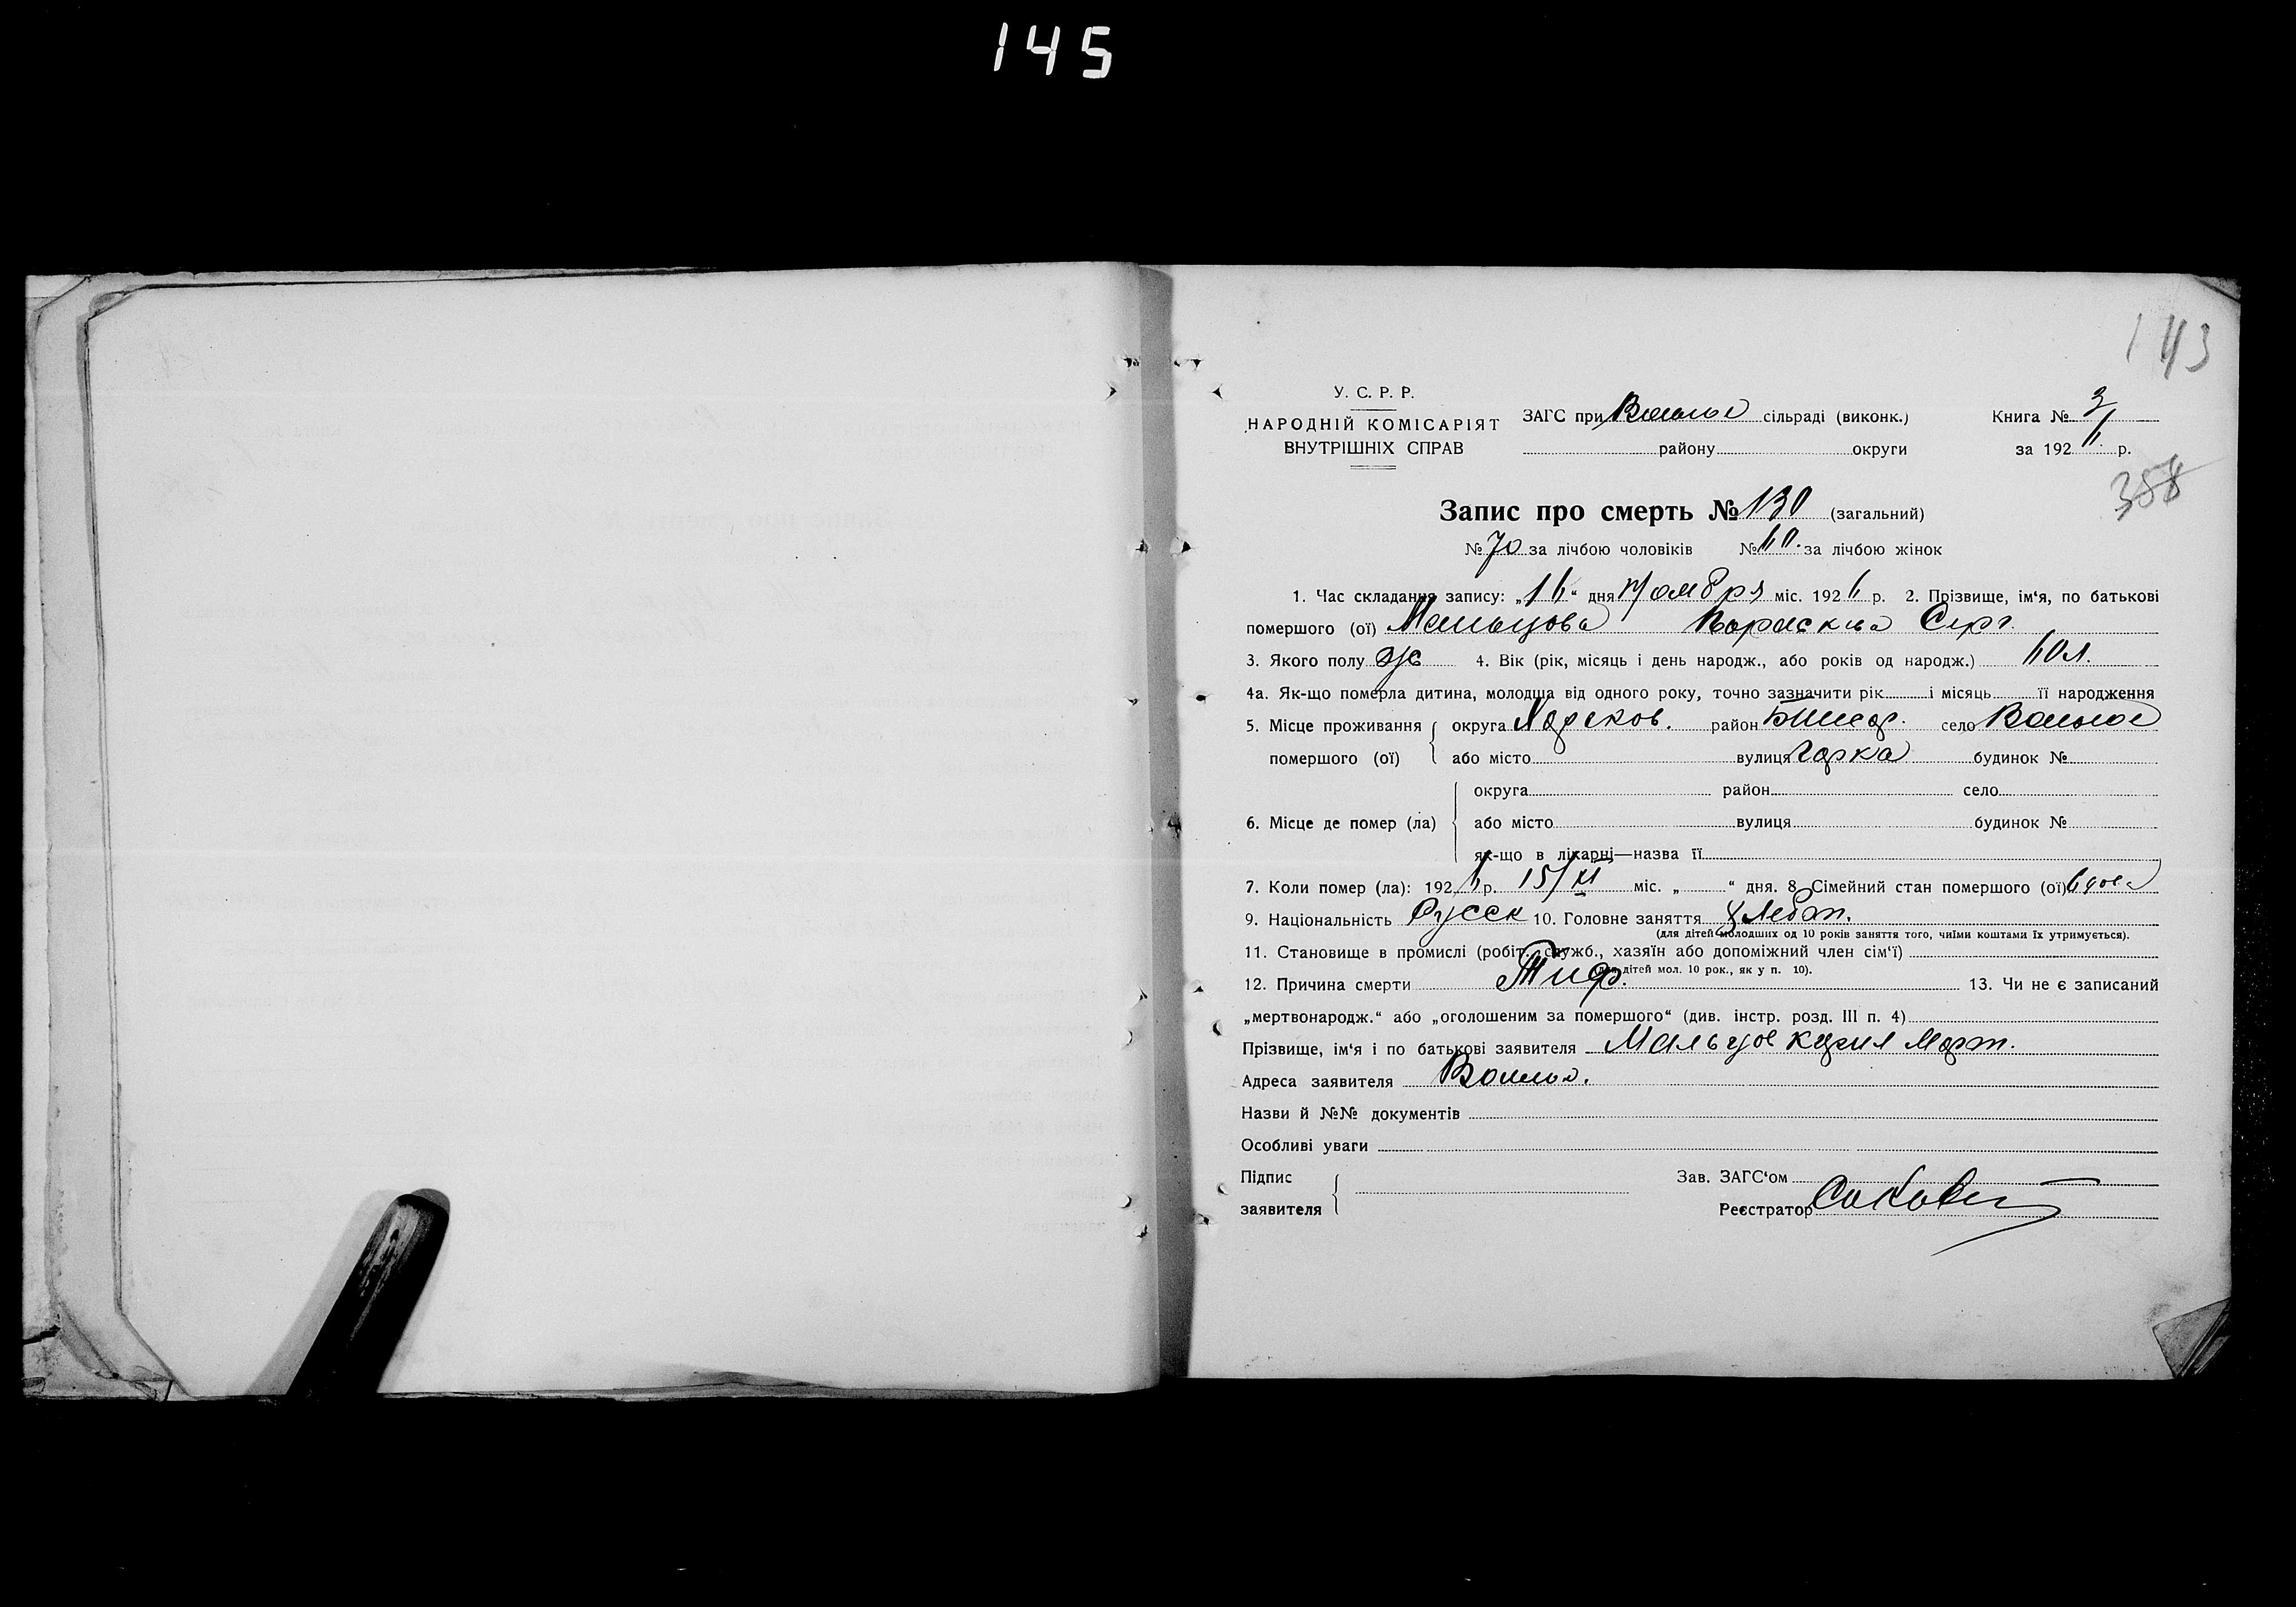 145
143
У. С. Р. Р.
НАРОДНІЙ КОМІСАРІЯТ
ВНУТРІШНІХ СПРАВ
ЗАГС при Вольное сільраді (виконк.)
району округи
Книга № 3/1
за 1926 р.
358
Запис про смерть № 130 (загальний)
№ 70 за лічбою чоловіків № 60. за лічбою жінок
1. Час складання запису: „16“ дня Ноября міс. 1926 р. 2. Прізвище, ім‘я, по батькові
помершого (ої) Мальцова Параскева Серг.
3. Якого полу ж 4. Вік (рік, місяць і день народж., або років од народж.) 60 л.
4а. Як-що померла дитина, молодша від одного року, точно зазначити рік і місяць її народження
5. Місце проживання округа Харьков. район село Вольное
помершого (ої) або місто вулиця Горка будинок №
округа район село
6. Місце де помер (ла) або місто вулиця будинок №
як-що в лікарні—назва її
7. Коли помер (ла): 1926 р. 15/XI міс. „ “ дня. 8. Сімейний стан помершого (ої) вдова
9. Національність Русск 10. Головне заняття Хлебоп.
(для дітей молодших од 10 років заняття того, чиїми коштами їх утримується).
11. Становище в промислі (робіт., служб., хазяїн або допоміжний член сім‘ї)
(для дітей мол. 10 рок., як у п. 10).
12. Причина смерти Тиф. 13. Чи не є записаний
„мертвонародж.“ або „оголошеним за помершого“ (див. інстр. розд. III п. 4)
Прізвище, ім‘я і по батькові заявителя Мальцов Кирил Март.
Адреса заявителя Вольное.
Назви й №№ документів
Особливі уваги
Підпис
заявителя
Зав. ЗАГС‘ом
Реєстратор